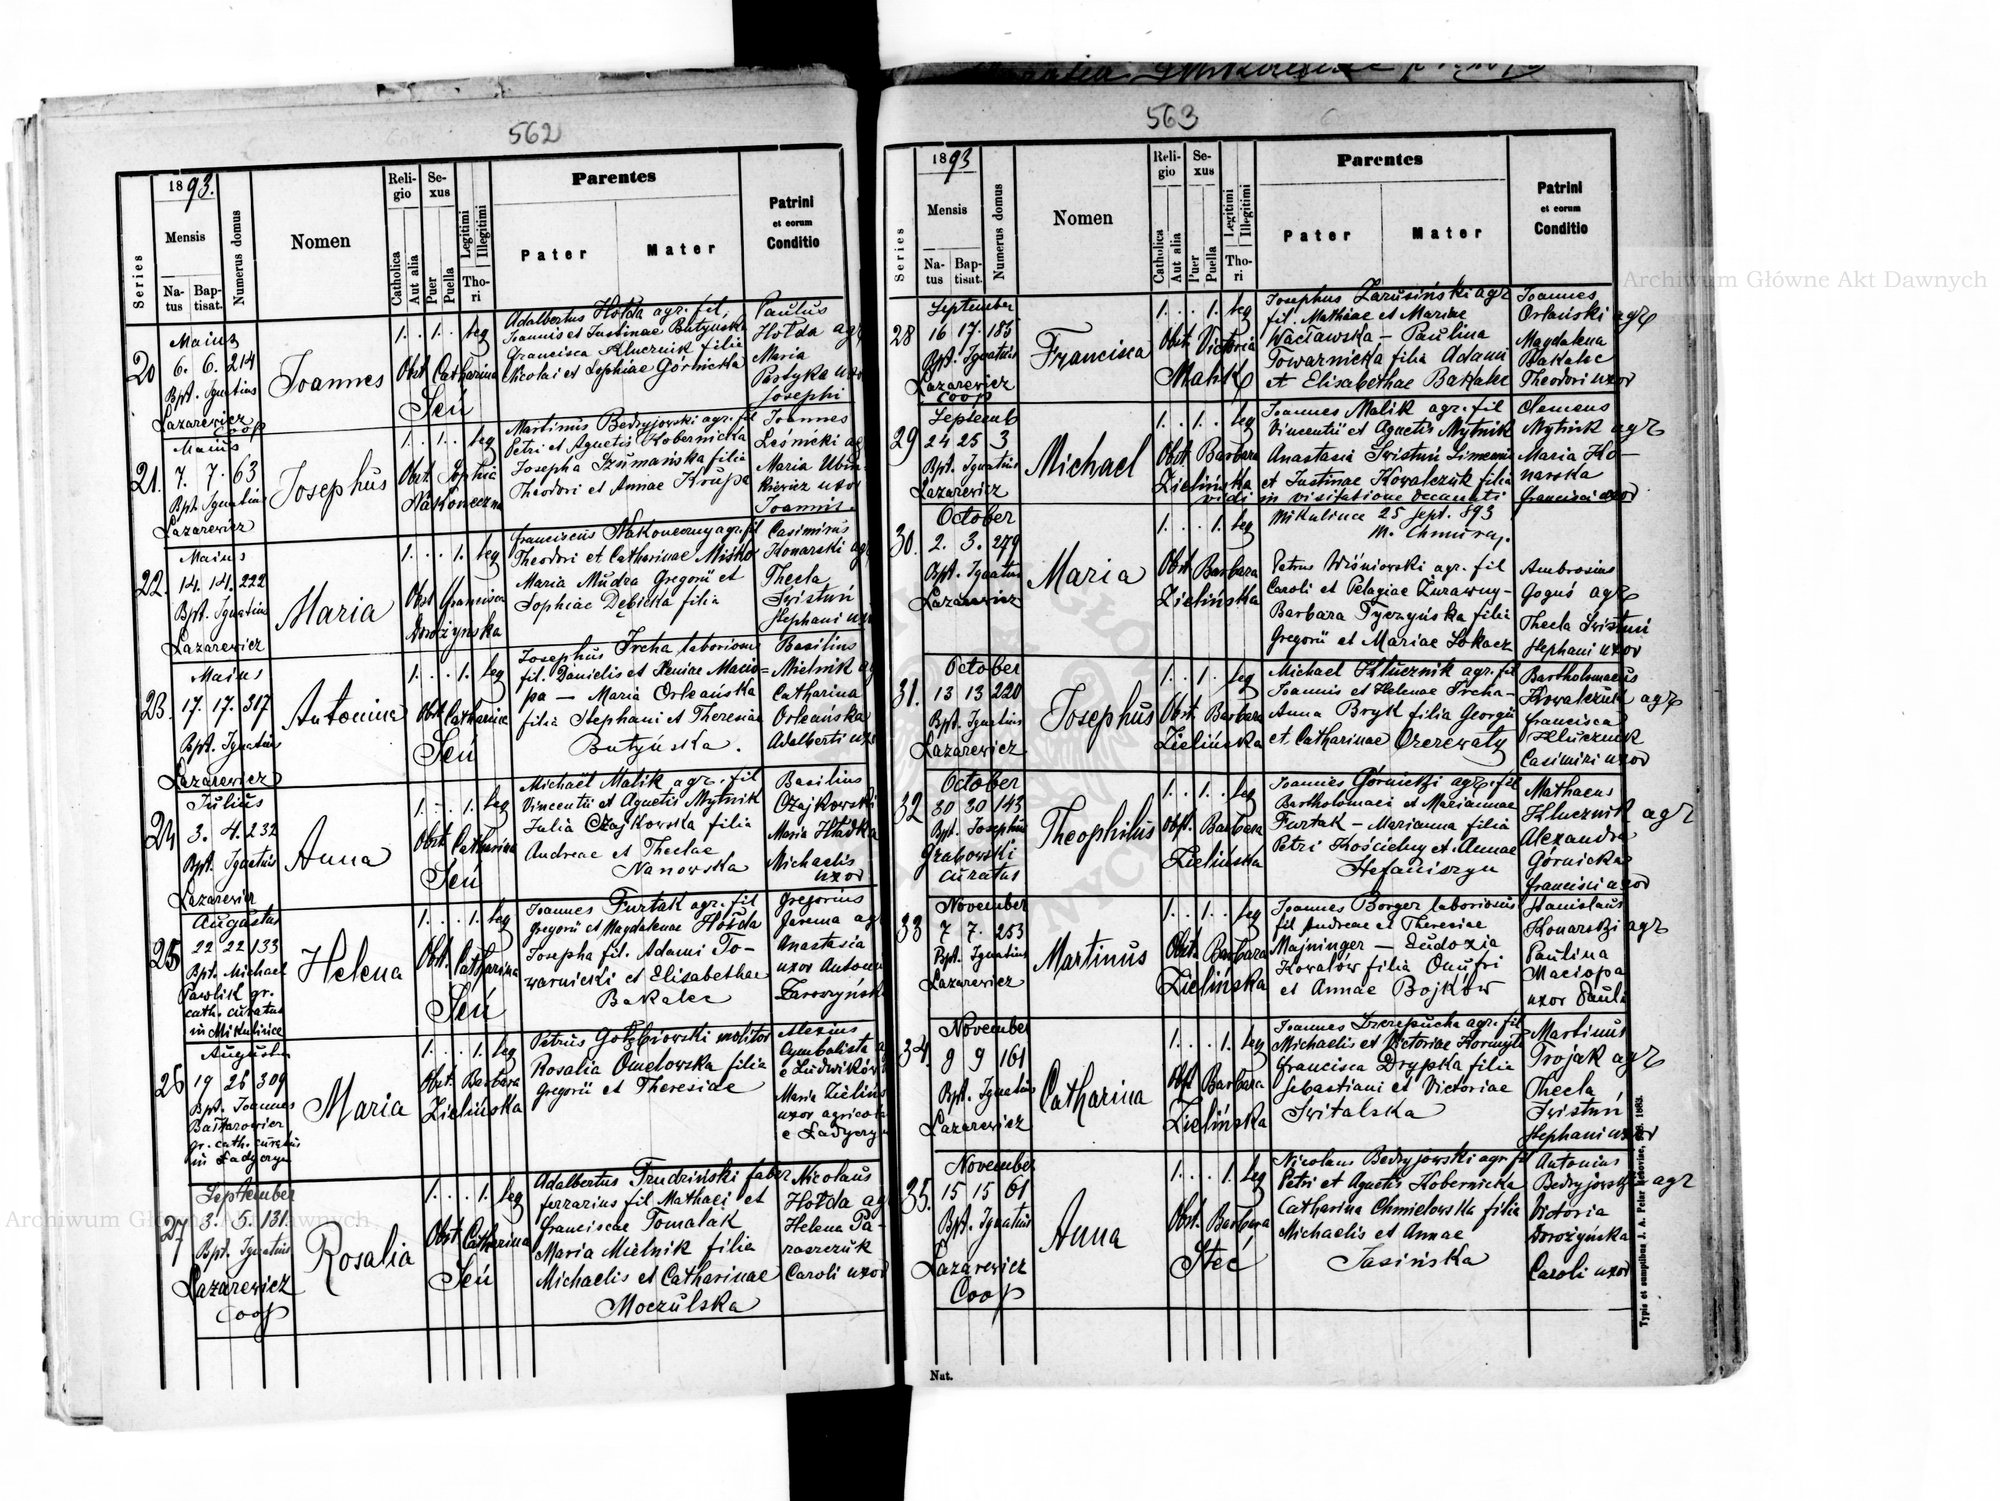 562
1893.
Series
Mensis
Natus
Baptisat.
Numerus domus
Nomen
Religio
Catholica
Aut alia
Sexus
Puer
Puella
Legitimi
Illegitimi
Thori
Parentes
Pater
Mater
Patrini
et eorum
Conditio
20
Maius
6. 6. 214
Bpt. Ignatius
Lazarewicz
coop
Joannes
1. . 1. . leg
Obst Catharina
Seń
Adalbertus Hołda agr. fil,
Joannis et Justinae Butyńska
Francisca Klucznik filia
Nicolai et Sophiae Górnicka
Paulus
Hołda agr
Maria
Pastyka uxor
Josephi
21.
Maius
7. 7. 63
Bpt Ignatius
Lazarewicz
Josephus
1. . 1. . leg
Obst. Sophia
Nakoneczna
Martinus Bedryjowski agr. fil
Petri et Agnetis Kobernicka
Josepha Szumańska filia
Theodori et Annae Krupa
Joannes
Leśnicki ag
Maria
kiewicz uxor
Joannis.
22.
Maius
14. 14. 222
Bpt. Ignatius
Lazarewicz
Maria
1. . . 1. leg
Obst Francisca
Dorożyńska
Franciscus Nakoneczny agr. fil
Theodori et Catharinae Misko
Maria Mudra Gregorii et
Sophiae Dębicka filia
Casimirus
Konarski agr
Thecla
Swistuń
Stephani uxor
23.
Maius
17. 17. 317
Bpt. Ignatius
Lazarewicz
Antonina
1. . . 1. leg
Obst Catharina
Seń
Josephus Ircha laboriosus
fil. Danielis et Xeniae Macio=
pa — Maria Orleańska
filia Stephani et Theresiae
Butyńska.
Basilius
Mielnik ag
Catharina
Orleańska
Adalberti uxor
24
Julius
3. 4. 232
Bpt. Ignatius
Lazarewicz
Anna
1. . 1. leg
Obst Catharina
Seń
Michaël Malik agr. fil
Vincentii et Agnetis Mytnik
Julia Czajkowska filia
Andreae et Theclae
Nanowska
Basilius
Czajkowski
Maria
Michaelis
uxor
25
Augustus
22 22 133
Bpt. Michael
Pawlik gr.
cath. curatus
in Mikulińce
Helena
1. . . 1. leg
Obst. Catharina
Seń
Joannes Furtak agr. fil
Gregorii et Magdalenae Hołda
Josepha fil. Adami To-
warnicki et Elisabethae
Bakalec
Gregorius
Jarema ag
Anastasia
uxor Antoni
Zaroszyńsk
26
Augustus
19 26 309
Bpt. Joannes
gr. cath. curatus
in Ładyczyn
Maria
1. . . 1. leg
Obst. Barbara
Zielińska
Petrus Gołębiowski molitor
Rosalia Omelowska filia
Gregorii et Theresiae
Alexius
Cymbalista a
e Ludwików
Maria Zielińs
uxor agricola
e Ładyczyn
27
September
3. 5. 131
Bpt. Ignatius
Lazarewicz
coop
Rosalia
1. . . 1. leg
Obst Catharina
Seń
Adalbertus Trudziński faber
ferrarius fil Mathaei et
Franciscae Tomalak
Maria Mielnik filia
Michaelis et Catharinae
Moczulska
Nicolaus
Hołda ag
Helena Pa-
raszczuk
Caroli uxor
563
1893
Series
Mensis
Natus
Baptisat.
Numerus domus
Nomen
Religio
Catholica
Aut alia
Sexus
Puer
Puella
Legitimi
Illegitimi
Thori
Parentes
Pater
Mater
Patrini
et eorum
Conditio
28
September
16 17. 185
Bpt. Ignatius
Lazarewicz
coop
Francisca
1. . . 1. leg
Obst Victoria
Malik
Josephus Zarusiński agr
fil. Mathiae et Mariae
Wacławska — Paulina
Towarnicka filia Adami
et Elisabethae Bakalec
Joannes
Orlański agr
Magdalena
Bakalec
Theodori uxor
29
Septemb
24 25 3
Bpt. Ignatius
Lazarewicz
Michael
1. . 1. . leg
Obst. Barbara
Zielińska
Joannes Malik agr. fil
Vincentii et Agnetis Mytnik
Anastasia Swistuń Simeonis
et Justinae Kowalczuk filia
Clemens
Mytnik agr
Maria Ko-
narska
Francisci uxor
vidi in visitatione decanali
Mikulince 25 Sept. 893
M. Chmuraj.
30.
October
2. 3. 279
Bpt. Ignatius
Lazarewicz
Maria
1. . . 1. leg
Obst Barbara
Zielińska
Petrus Wiśniowski agr. fil
Caroli et Pelagiae Żurawny-
Barbara Tyczyńska filia
Gregorii et Mariae Sokacz
Ambrosius
Goguś agr
Thecla Swistuń
Stephani uxor
31.
October
13 13 220
Bpt. Ignatius
Lazarewicz
Josephus
1. . 1. . leg
Obst. Barbara
Zielińska
Michael Kluczni agr. fil
Joannis et Helenae Ircha-
Anna Bryk filia Georgii
et Catharinae Oczerwaty
Bartholomaeus
Kowalczuk agr
Francisca
Kluczni
Casimiri uxor
32
October
30 30 143
Bpt. Josephus
Grabowski
curatus
Theophilus
1. . 1. . leg
Obst. Barbara
Zielińska
Joannes Górnicki agr. fil
Bartholomaei et Mariannae
Furtak — Marianna filia
Petri Kościelny et Annae
Stefaniszyn
Mathaeus
Kluczni agr
Alexandra
Górnicka
Francisci uxor
33
November
7 7. 253
Bpt. Ignatius
Lazarewicz
Martinus
1. . 1. . leg
Obst. Barbara
Zielińska
Joannes Borger laboriosus
fil Andreae et Theresiae
Majninger — Eudoxia
Kowalów filia Onufri
et Annae Bojków
Stanislaus
Konarski agr
Paulina
Maciopa
uxor Pauli
34.
November
9 9 161
Bpt. Ignatius
Lazarewicz
Catharina
1. . . 1. leg
Obst Barbara
Zielińska
Joannes Szczepucha agr. fil
Michaelis et Victoriae Kormyło
Francisca Drypka filia
Sebastiani et Victoriae
Switalska
Martinus
Trojak agr
Thecla
Swistuń
Stephani uxor
35.
November
15 15 61
Bpt. Ignatius
Lazarewicz
Coop
Anna
1. . . 1 leg
Obst. Barbara
Steć
Nicolaus Bedryjowski agr. fil
Petri et Agnetis Kobernicka
Catharina Chmielowska filia
Michaelis et Annae
Jasińska
Antonius
Bedryjowski agr
Victoria
Dorożyńska
Caroli uxor
Nat.
Typis et sumptibus J. A. Pelar Rzeszoviae, 1883.
Archiwum Główne Akt Dawnych
Archiwum Główne Akt Dawnych